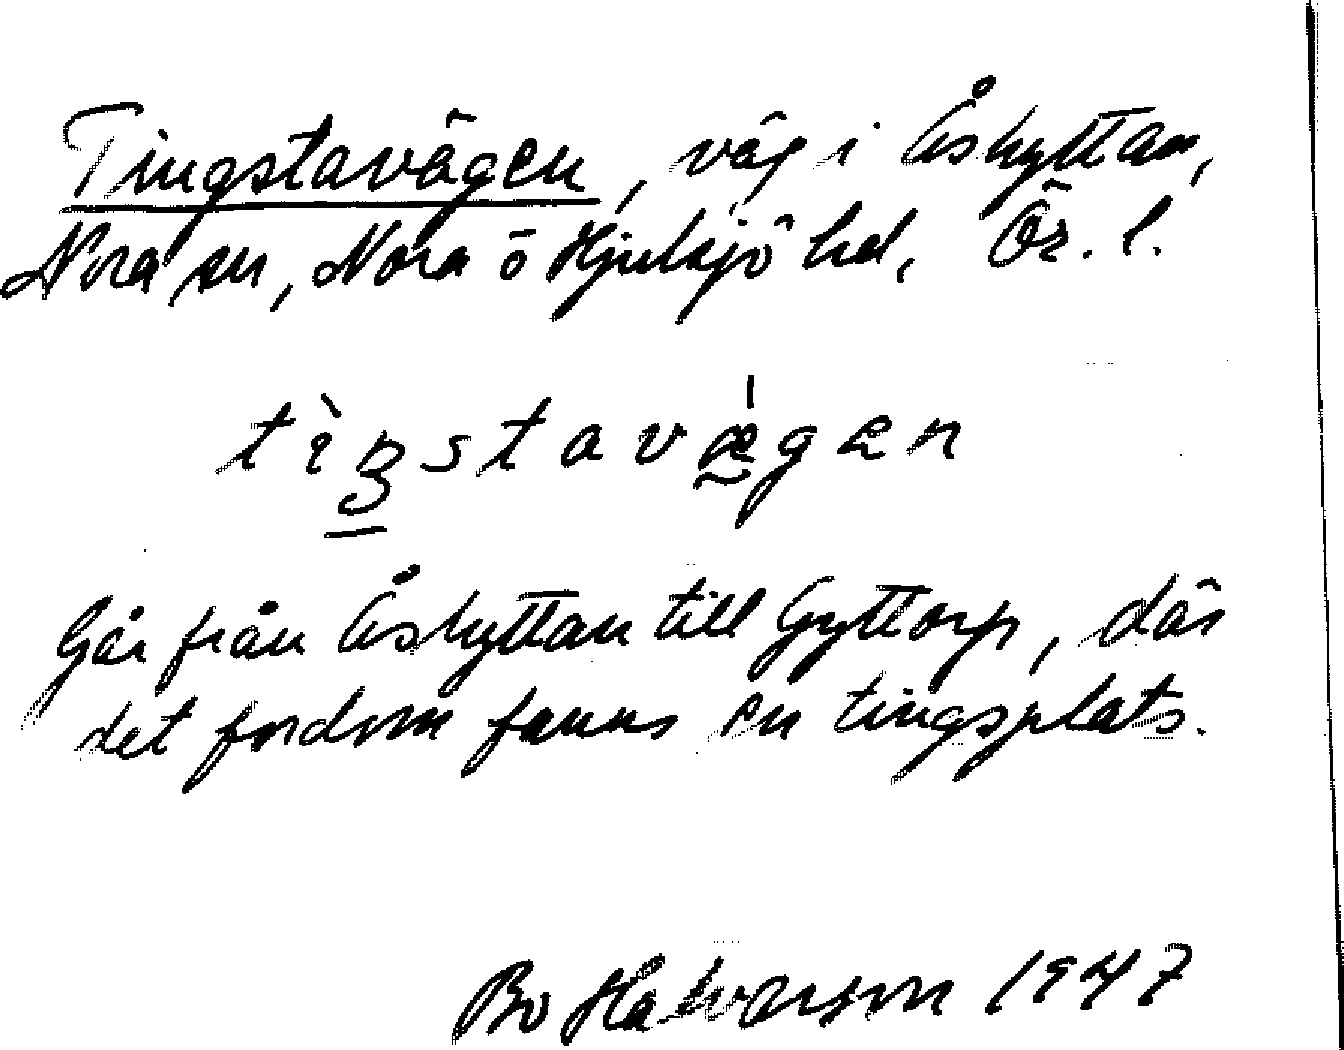 Tingstavägen, väg i Åshyttan,
Nora sn, Nora o Hjulsjö hd, Ör. l.
tìŋstavǽgæn
Går från Åshyttan till Gyttorp, där
det fordom fanns en tingsplats.
Bo Halvarson 1947